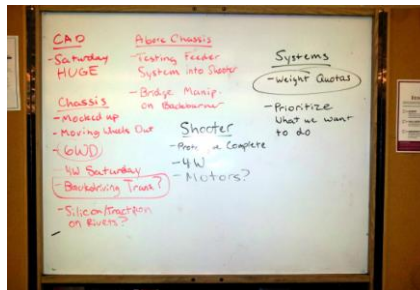 CAD
-Saturday
HUGE
Chassis
-Mocked up
-Moving Wheels Out
-6WD
-4W Saturday
-Backdriving Trans?
-Silicon/Traction
on Rivets?
Above Chassis
-Testing Feeder
System into Shooter
-Bridge Manip.
on Backburner
Shooter
Complete
-4W
-Motors?
Systems
-Weight Quotas
-Prioritize
What we want
to do